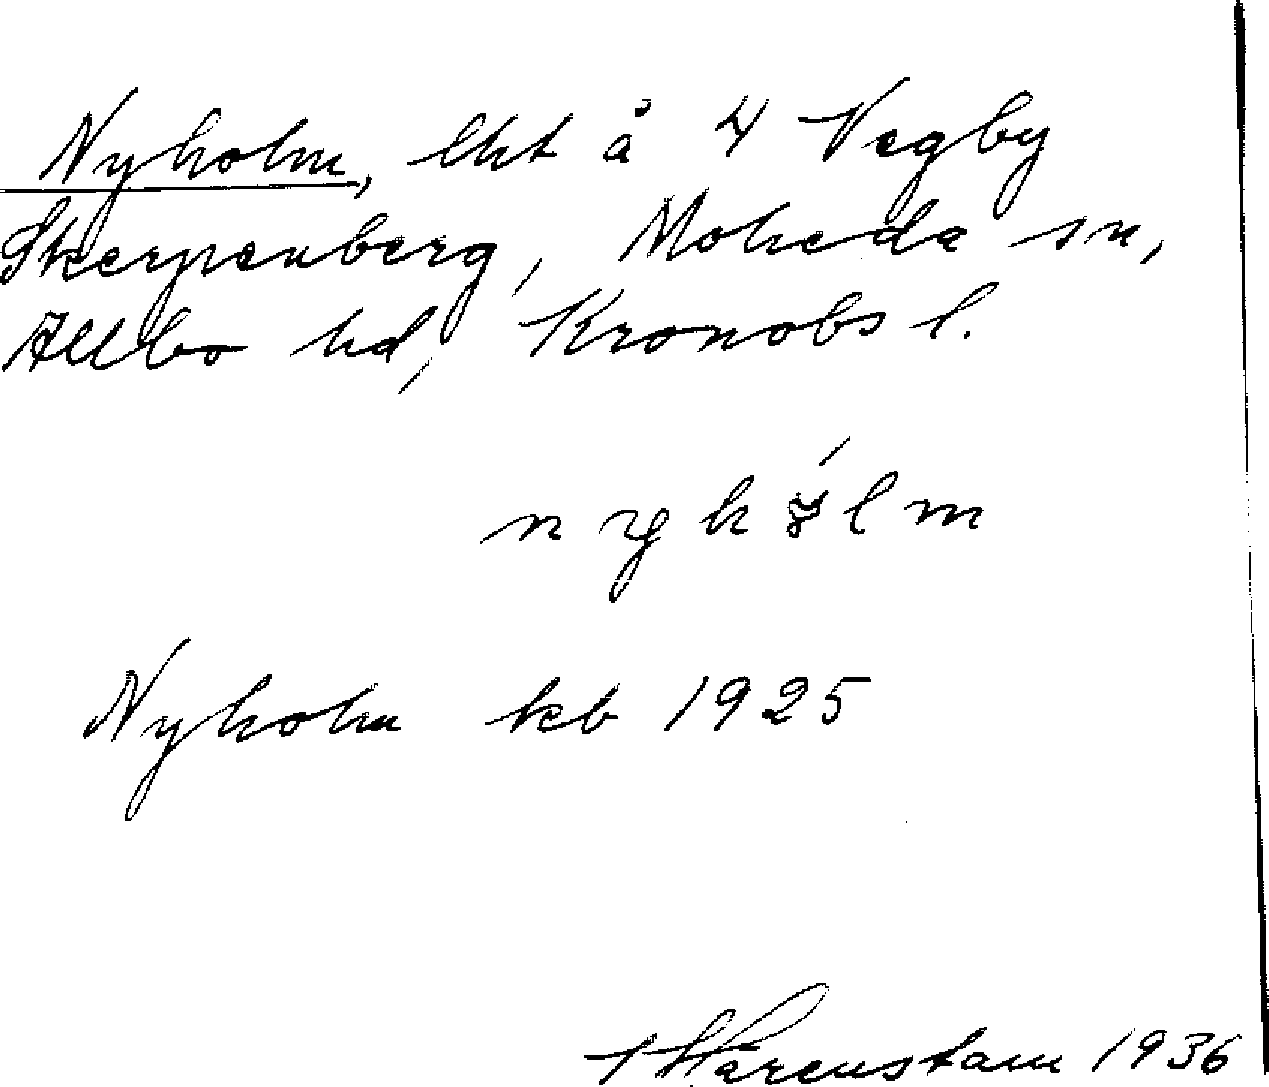 Nyholm, lht å 4 Vegby
Skerpenberg, Moheda sn,
Allbo hd, Kronobs l.
nyhólm
Nyholm kb 1925
Harenstam 1936